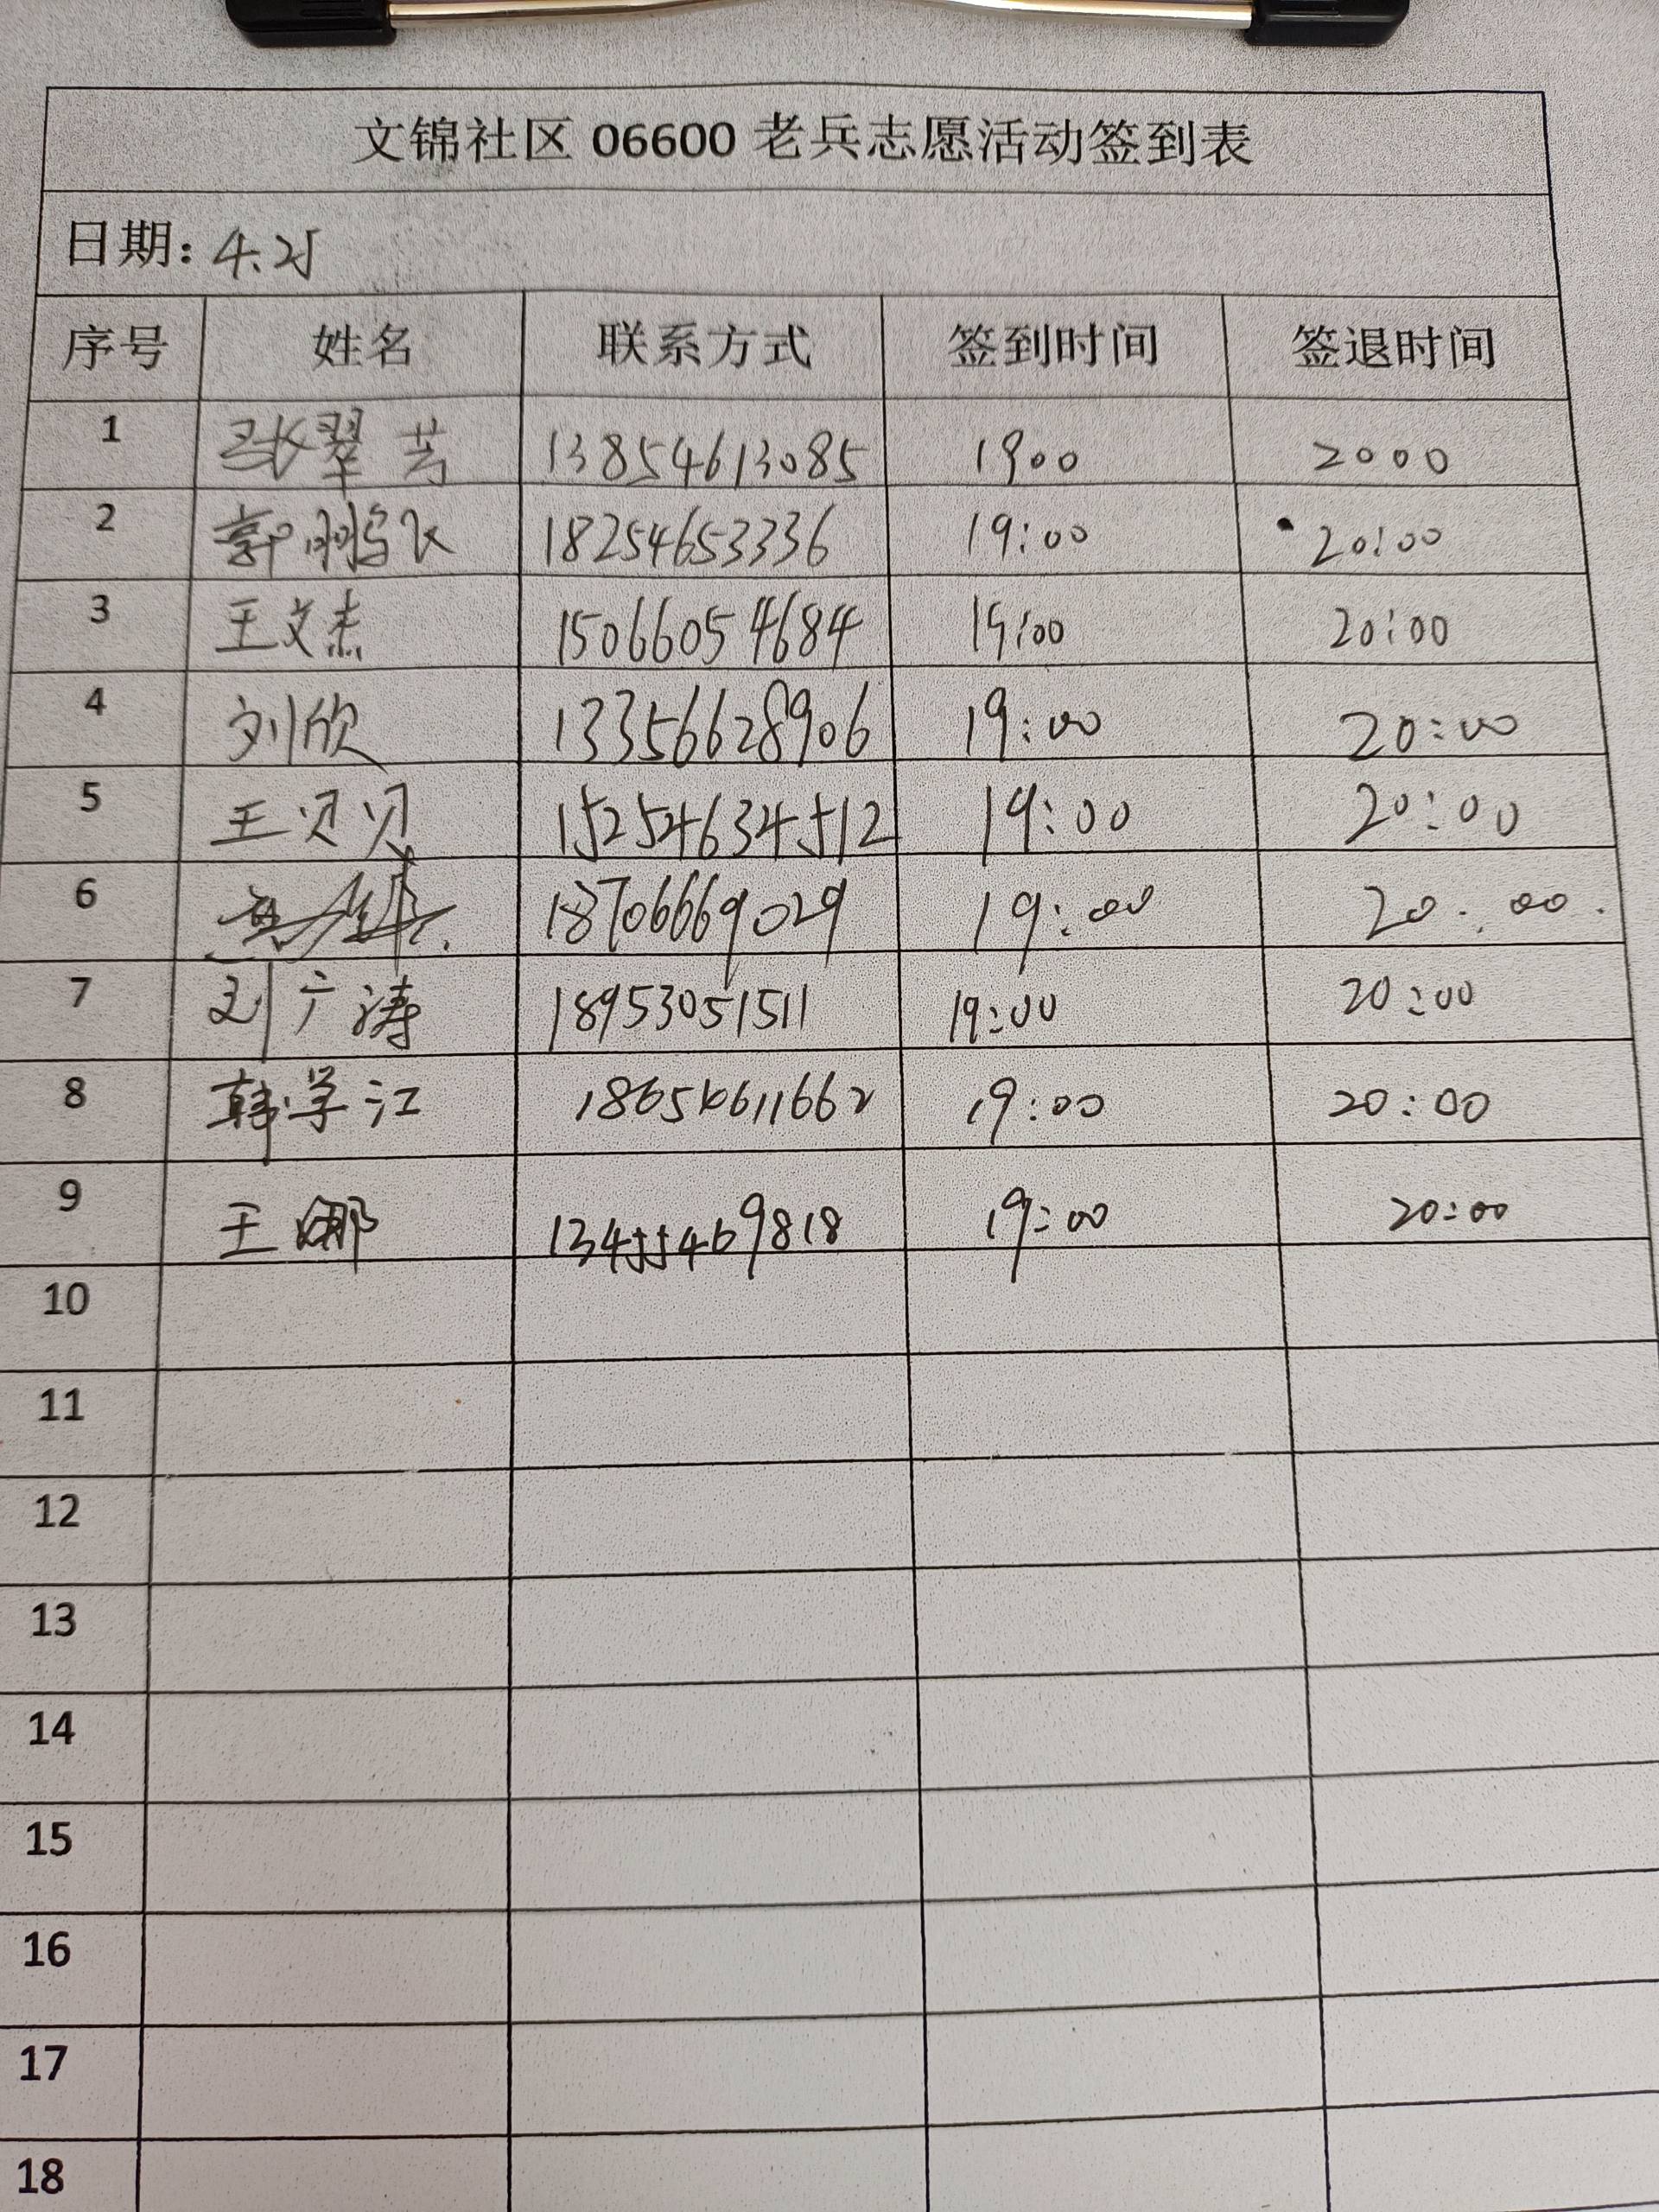 文锦社区 06600 老兵志愿活动签到表
日期: 4.25
序号 姓名 联系方式 签到时间 签退时间
1 张翠芳 13854613085 1900 2000
2 郭鹏飞 18254653336 19:00 20:00
3 王文杰 15066054684 19:00 20:00
4 刘欣 13356628906 19:00 20:00
5 王贝贝 15254634512 19:00 20:00
6 18706669029 19:00 20:00
7 刘广涛 18953051511 19:00 20:00
8 韩学江 19:00 20:00
9 王娜 13455469818 19:00 20:00
10
11
12
13
14
15
16
17
18